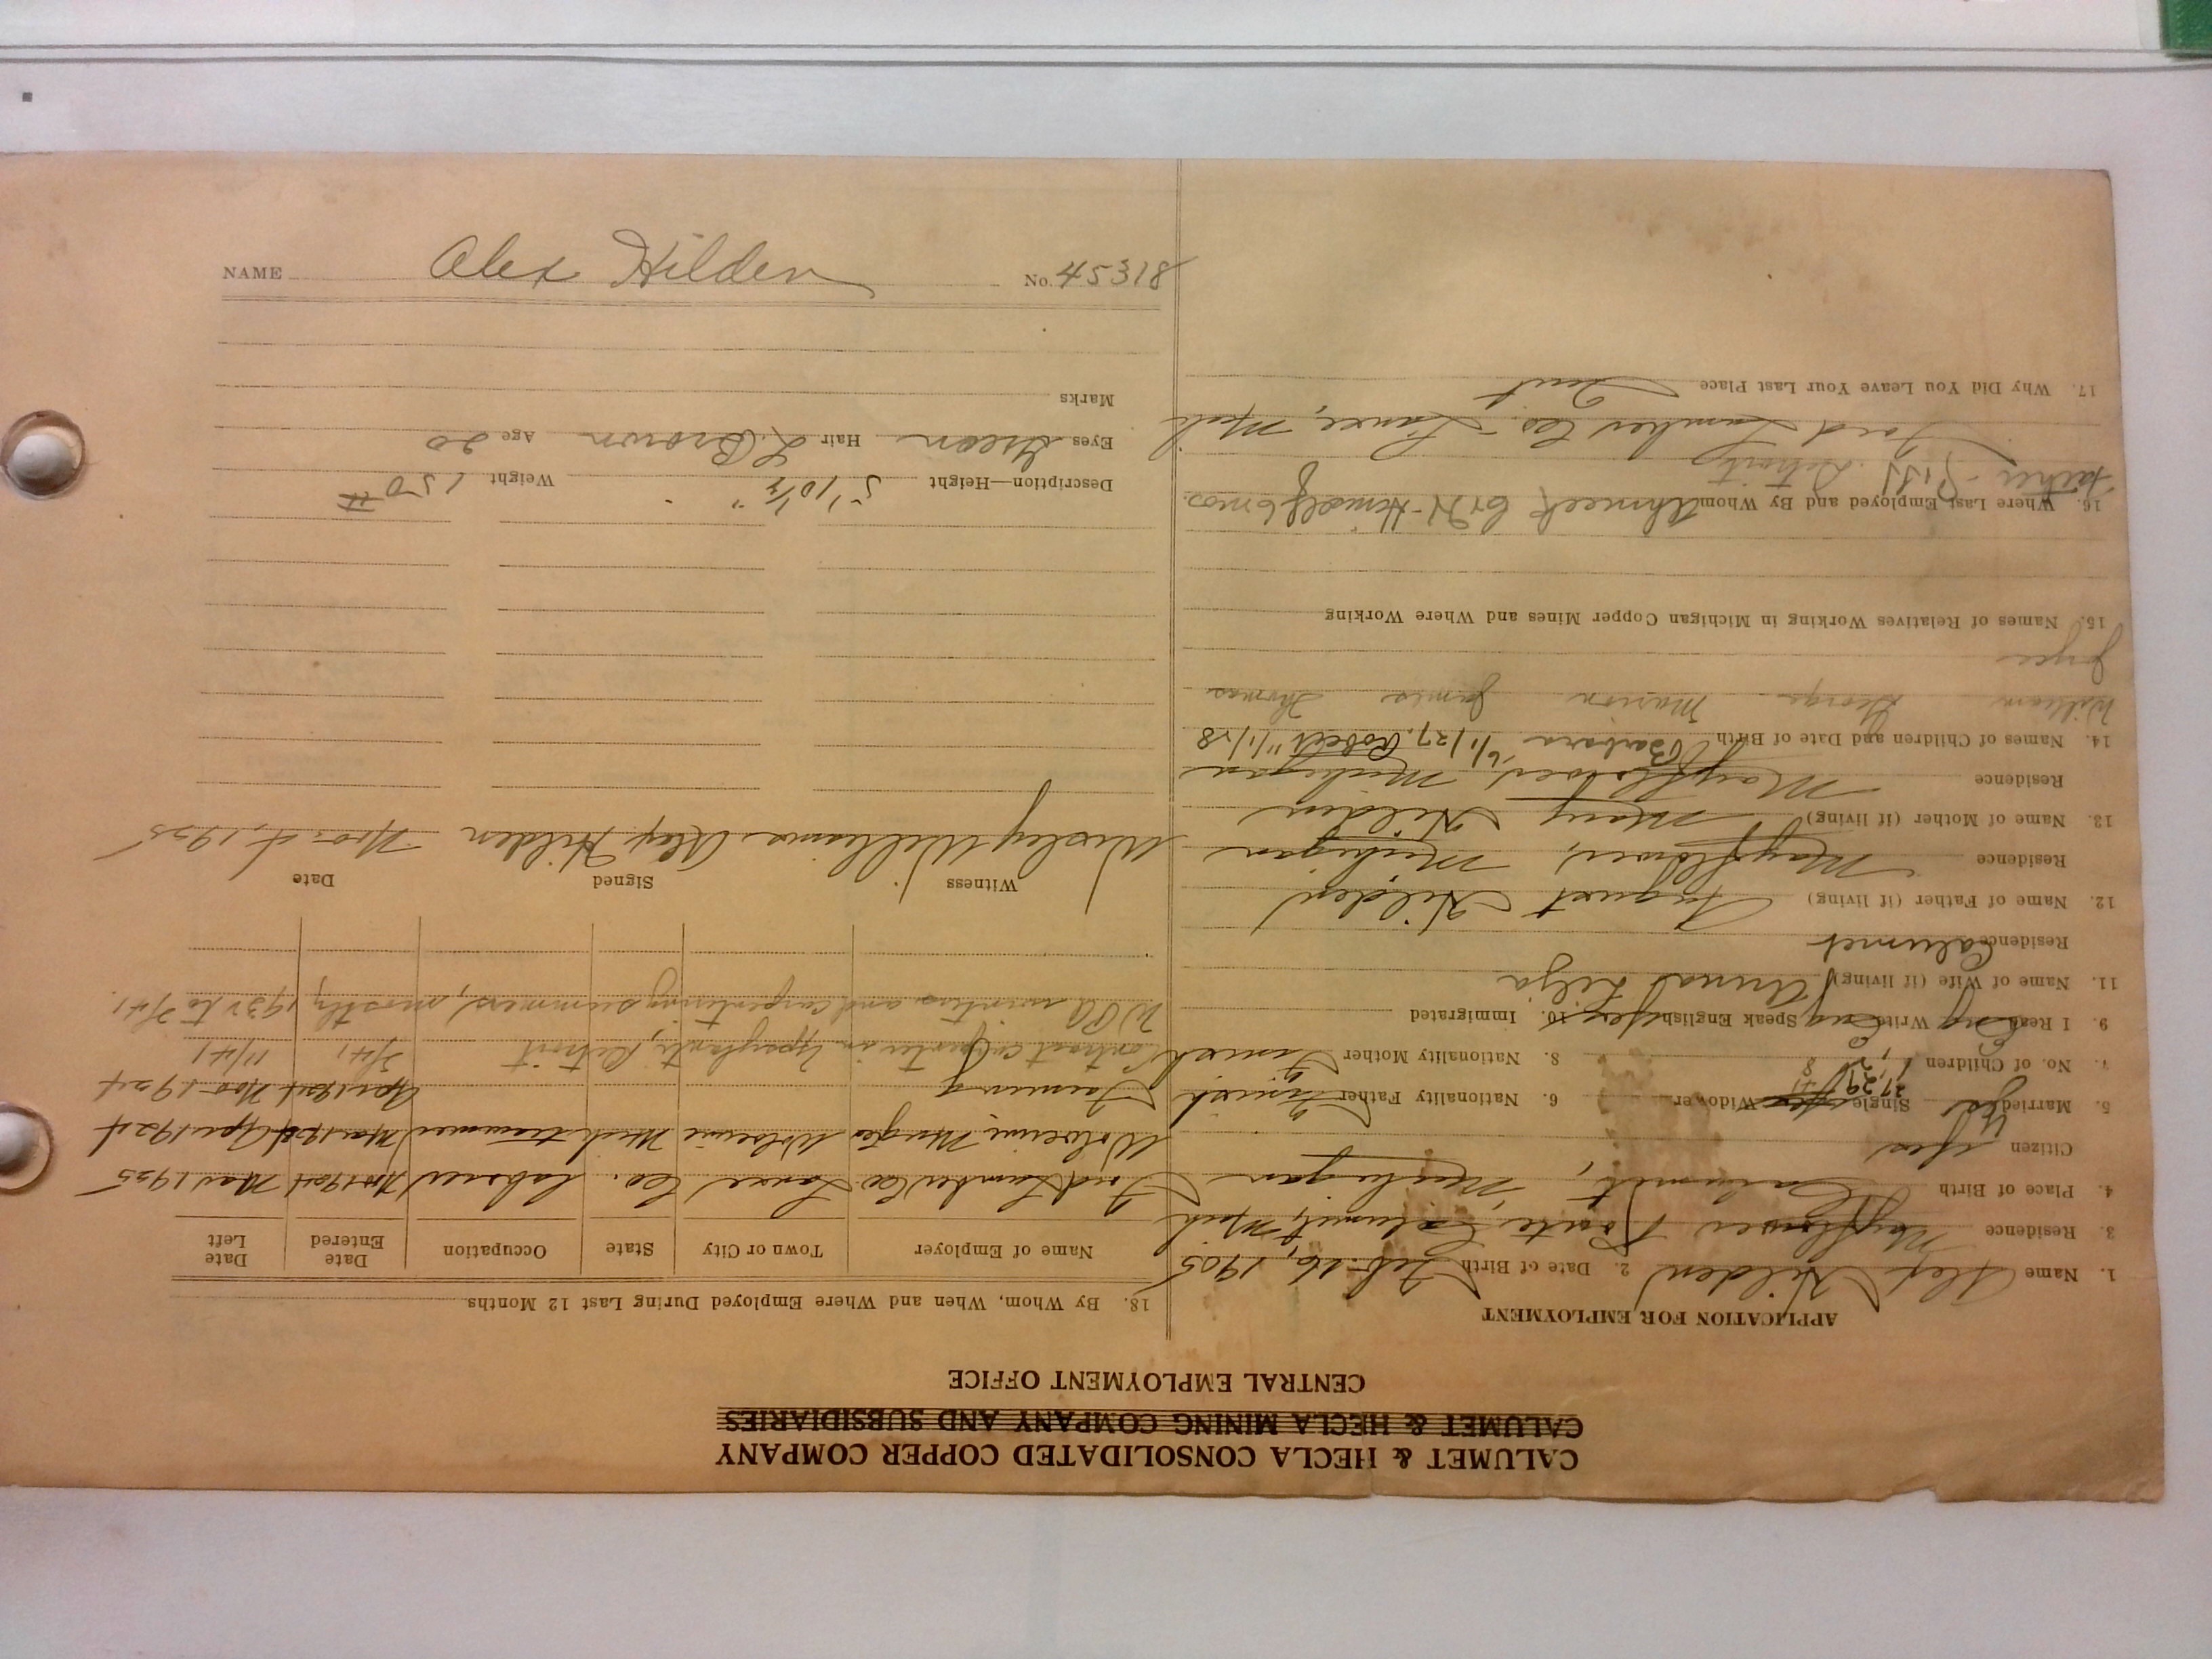 CALUMET & HECLA CONSOLIDATED COPPER COMPANY
CALUMET & HECLA MINING COMPANY AND SUBSIDIARIES
CENTRAL EMPLOYMENT OFFICE
APPLICATION FOR EMPLOYMENT
1. Name Alex Hilden 2. Date of Birth Feb. 16, 1905
3 Residence Mayflower Route, Calumet, Mich
4. Place of Birth Calumet, Michigan
Citizen Yes
5. Married Yes Single Widower 6. Nationality Father Finnish
7. No. of Children 8. Nationality Mother Finnish
9. I Read Eng Write Eng Speak English Yes 10. Immigrated
11. Name of Wife (if living) Anna Lilja
Residence Calumet
12. Name of Father (if living) August Hilden
Residence Mayflower, Michigan
13. Name of Mother (if living) Mary Hilden
Residence Mayflower, Michigan
14. Names of Children and Date of Birth Barbara 6/1/27, Robert 11/1/28
William George Marion James Thomas
Joyce
15. Names of Relatives Working in Michigan Copper Mines and Where Working
16. Where Last Employed and By Whom Ahmeek 6 mos.
Detroit
Ford Lumber Co. - Lanse, Mich
17. Why Did You Leave Your Last Place Quit
18. By Whom, When and Where Employed During Last 12 Months
Name of Employer Town or City State Occupation Date Entered Date Left
Ford Lumber Co Lanse Co. Laborer Nov 1924 Mar 1925
Wolverine Mining Co Wolverine Mich trammer Mar 1924 Apr 1924
Farming Apr 1924 Nov 1924
Contract carpenter in Ypsilanti, Detroit 3/41 11/41
WPA winters and carpentering summers, mostly 1932 to 3/41.
Witness Signed Date
Wesley Williams Alex Hilden Nov. 4, 1925
Description—Height 5' 10 1/2" Weight 150 #
Eyes Green Hair L. Brown Age 20
Marks
NAME Alex Hilden No. 45318